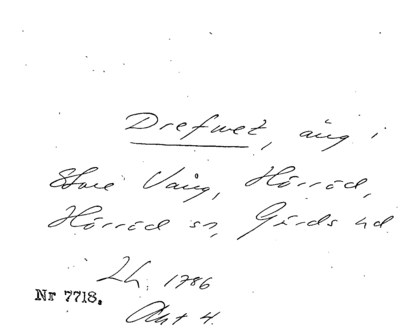 Drefwet, äng i
Store Vång, Hörröd,
Hörröd sn, Gärds hd
Lh. 1786
Nr 7718.
Akt 4.